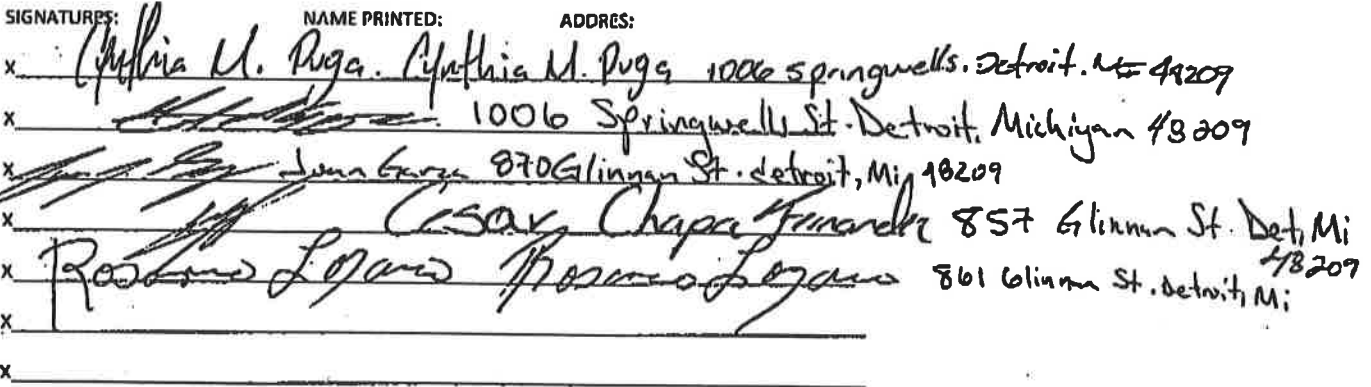 SIGNATURES: NAME PRINTED: ADDRES:
x Cynthia M. Puga. Cynthia M. Puga 1006 springwells. Detroit. MI 48209
x 1006 Springwells St. Detroit, Michigan 48209
x Juan Garza 870 Glinnan St. detroit, Mi, 48209
x Cesar Chapa Fernandez 857 Glinnan St. Det, Mi
48209
x Rosario Lozano Rosario Lozano 861 Glinnan St. Detroit, Mi
x
x